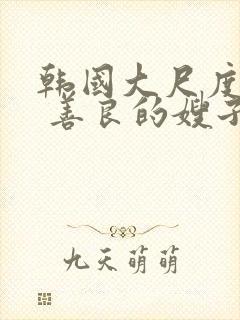 韩国大尺度
善良的嫂子
九天萌萌